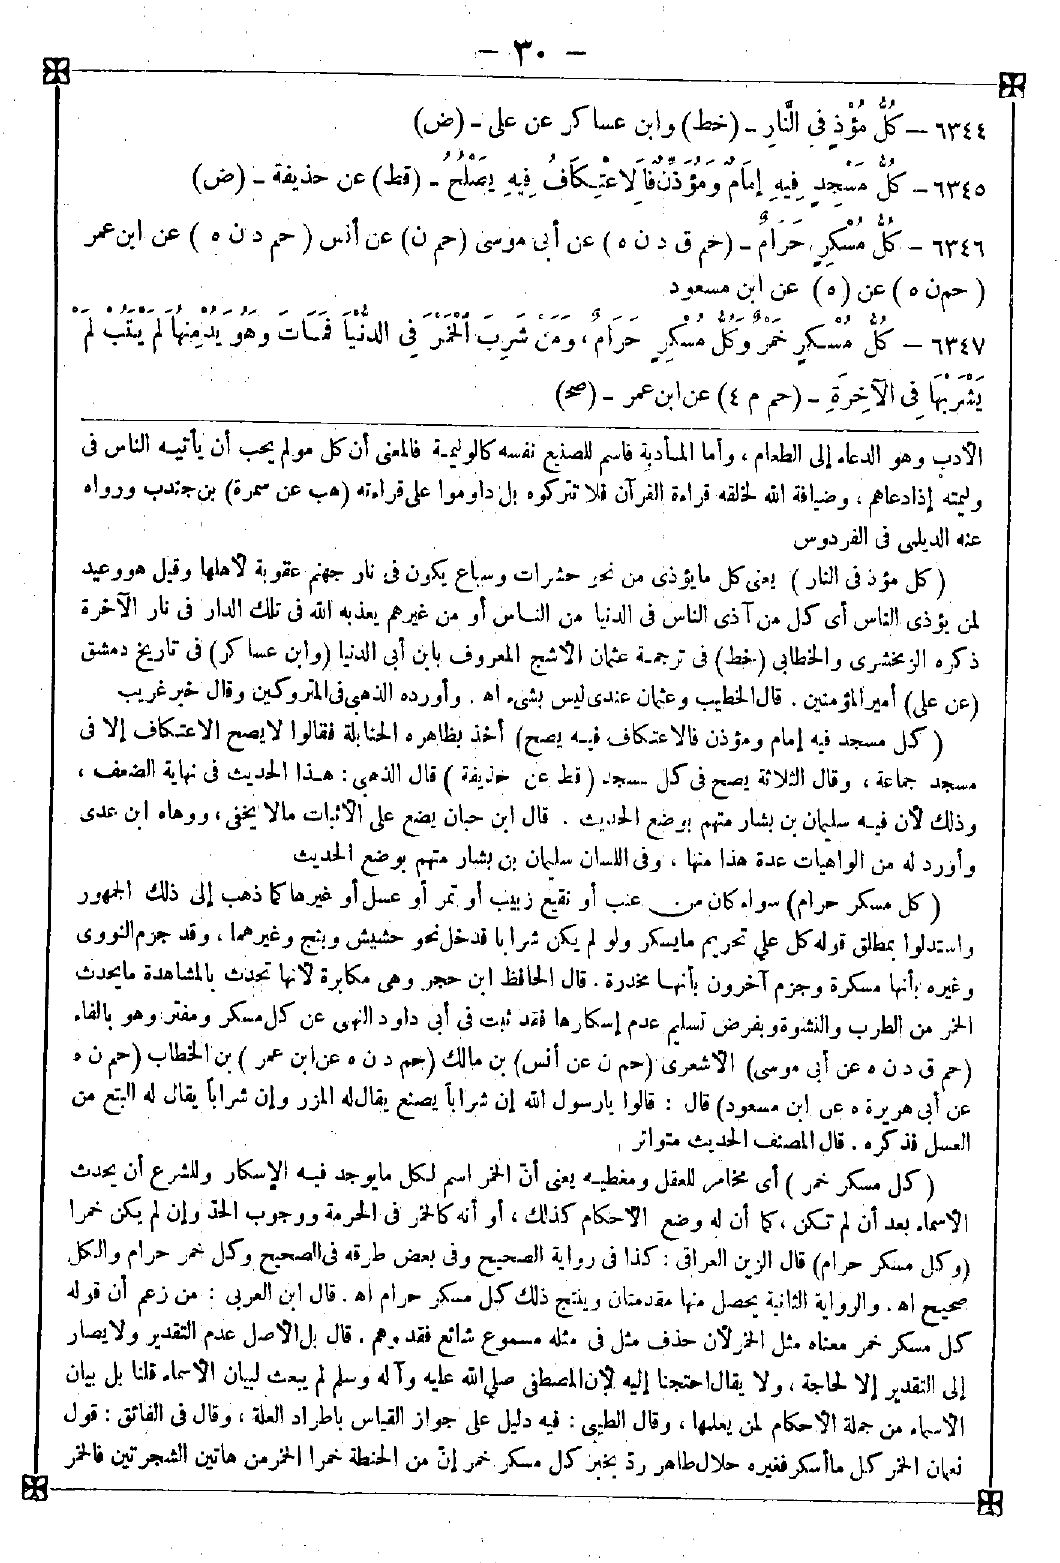 - ٣٠ -
٦٣٤٤ - كُلُّ مُؤْذٍ فِي النَّارِ - (خط) وابن عساكر عن على - (ض)
٦٣٤٥ - كُلُّ مَسْجِدٍ فِيهِ إِمَامٌ وَمُؤَذِّنٌ فَالِاعْتِكَافُ فِيهِ يَصْلُحُ - (قط) عن حذيفة - (ض)
٦٣٤٦ - كُلُّ مُسْكِرٍ حَرَامٌ - (حم ق د ن ه) عن أبى موسى (حم ن) عن أنس (حم د ن ه) عن ابن عمر
(حم ن ه) عن (ه) عن ابن مسعود
٦٣٤٧ - كُلُّ مُسْكِرٍ خَمْرٌ وَكُلُّ مُسْكِرٍ حَرَامٌ، وَمَنْ شَرِبَ الْخَمْرَ فِي الدُّنْيَا فَمَاتَ وَهُوَ يُدْمِنُهَا لَمْ يَتُبْ لَمْ
يَشْرَبْهَا فِي الْآخِرَةِ - (حم م ٤) عن ابن عمر - (صح)
الأدب وهو الدعاء إلى الطعام، وأما المأدبة فاسم للصنيع نفسه كالوليمة فالمعنى أن كل مولم يحب أن يأتيه الناس فى
وليمته إذا دعاهم، وضيافة الله لخلقه قراءة القرآن فلا تتركوه بل داوموا على قراءته (هب عن سمرة) بن جندب ورواه
عنه الديلمى فى الفردوس
(كل مؤذ فى النار) يعنى كل ما يؤذى من نحو حشرات وسباع يكون فى نار جهنم عقوبة لأهلها وقيل هو وعيد
لمن يؤذى الناس أى كل من آذى الناس فى الدنيا من الناس أو من غيرهم يعذبه الله فى تلك الدار فى نار الآخرة
ذكره الزمخشرى والخطابى (خط) فى ترجمة عثمان الأشج المعروف بابن أبى الدنيا (وابن عساكر) فى تاريخ دمشق
(عن على) أمير المؤمنين. قال الخطيب وعثمان عندى ليس بشىء اه. وأورده الذهبى فى المتروكين وقال خبر غريب
(كل مسجد فيه إمام ومؤذن فالاعتكاف فيه يصح) أخذ بظاهره الحنابلة فقالوا لا يصح الاعتكاف إلا فى
مسجد جماعة، وقال الثلاثة يصح فى كل مسجد (قط عن حذيفة) قال الذهبى: هذا الحديث فى نهاية الضعف،
وذلك لأن فيه سليمان بن بشار متهم بوضع الحديث. قال ابن حبان يضع على الأثبات مالا يخفى، ووهاه ابن عدى
وأورد له من الواهيات عدة هذا منها، وفى اللسان سليمان بن بشار متهم بوضع الحديث
(كل مسكر حرام) سواء كان من عنب أو نقيع زبيب أو تمر أو عسل أو غيرها كما ذهب إلى ذلك الجمهور
واستدلوا بمطلق قوله كل على تحريم ما يسكر ولو لم يكن شرابا فدخل نحو حشيش وبنج وغيرهما، وقد جزم النووى
وغيره بأنها مسكرة وجزم آخرون بأنها مخدرة. قال الحافظ ابن حجر وهى مكابرة لأنها تحدث بالمشاهدة ما يحدث
الخمر من الطرب والنشوة وبفرض تسليم عدم إسكارها فقد ثبت فى أبى داود النهى عن كل مسكر ومفتر وهو بالفاء
(حم ق د ن ه عن أبى موسى) الأشعرى (حم ن عن أنس) بن مالك (حم د ن ه عن ابن عمر) بن الخطاب (حم ن ه
عن أبى هريرة ه عن ابن مسعود) قال: قالوا يا رسول الله إن شراباً يصنع يقال له المزر وإن شراباً يقال له البتع من
العسل فذكره. قال المصنف الحديث متواتر
(كل مسكر خمر) أى مخامر للعقل ومغطيه يعنى أنّ الخمر اسم لكل ما يوجد فيه الإسكار وللشرع أن يحدث
الأسماء بعد أن لم تكن، كما أن له وضع الأحكام كذلك، أو أنه كالخمر فى الحرمة ووجوب الحدّ وإن لم يكن خمرا
(وكل مسكر حرام) قال الزين العراقى: كذا فى رواية الصحيح وفى بعض طرقه فى الصحيح وكل خمر حرام والكل
صحيح اه. والرواية الثانية يحصل منها مقدمتان وينتج ذلك كل مسكر حرام اه. قال ابن العربى: من زعم أن قوله
كل مسكر خمر معناه مثل الخمر لأن حذف مثل فى مثله مسموع شائع فقد وهم. قال بل الأصل عدم التقدير ولا يصار
إلى التقدير إلا لحاجة، ولا يقال احتجنا إليه لأن المصطفى صلى الله عليه وآله وسلم لم يبعث لبيان الأسماء قلنا بل بيان
الأسماء من جملة الأحكام لمن يعلمها، وقال الطيبى: فيه دليل على جواز القياس باطراد العلة، وقال فى الفائق: قول
نعمان الخمر كل ما أسكر فغيره حلال طاهر ردّ بخبر كل مسكر خمر إنّ من الحنطة خمرا الخمر من هاتين الشجرتين فالخمر